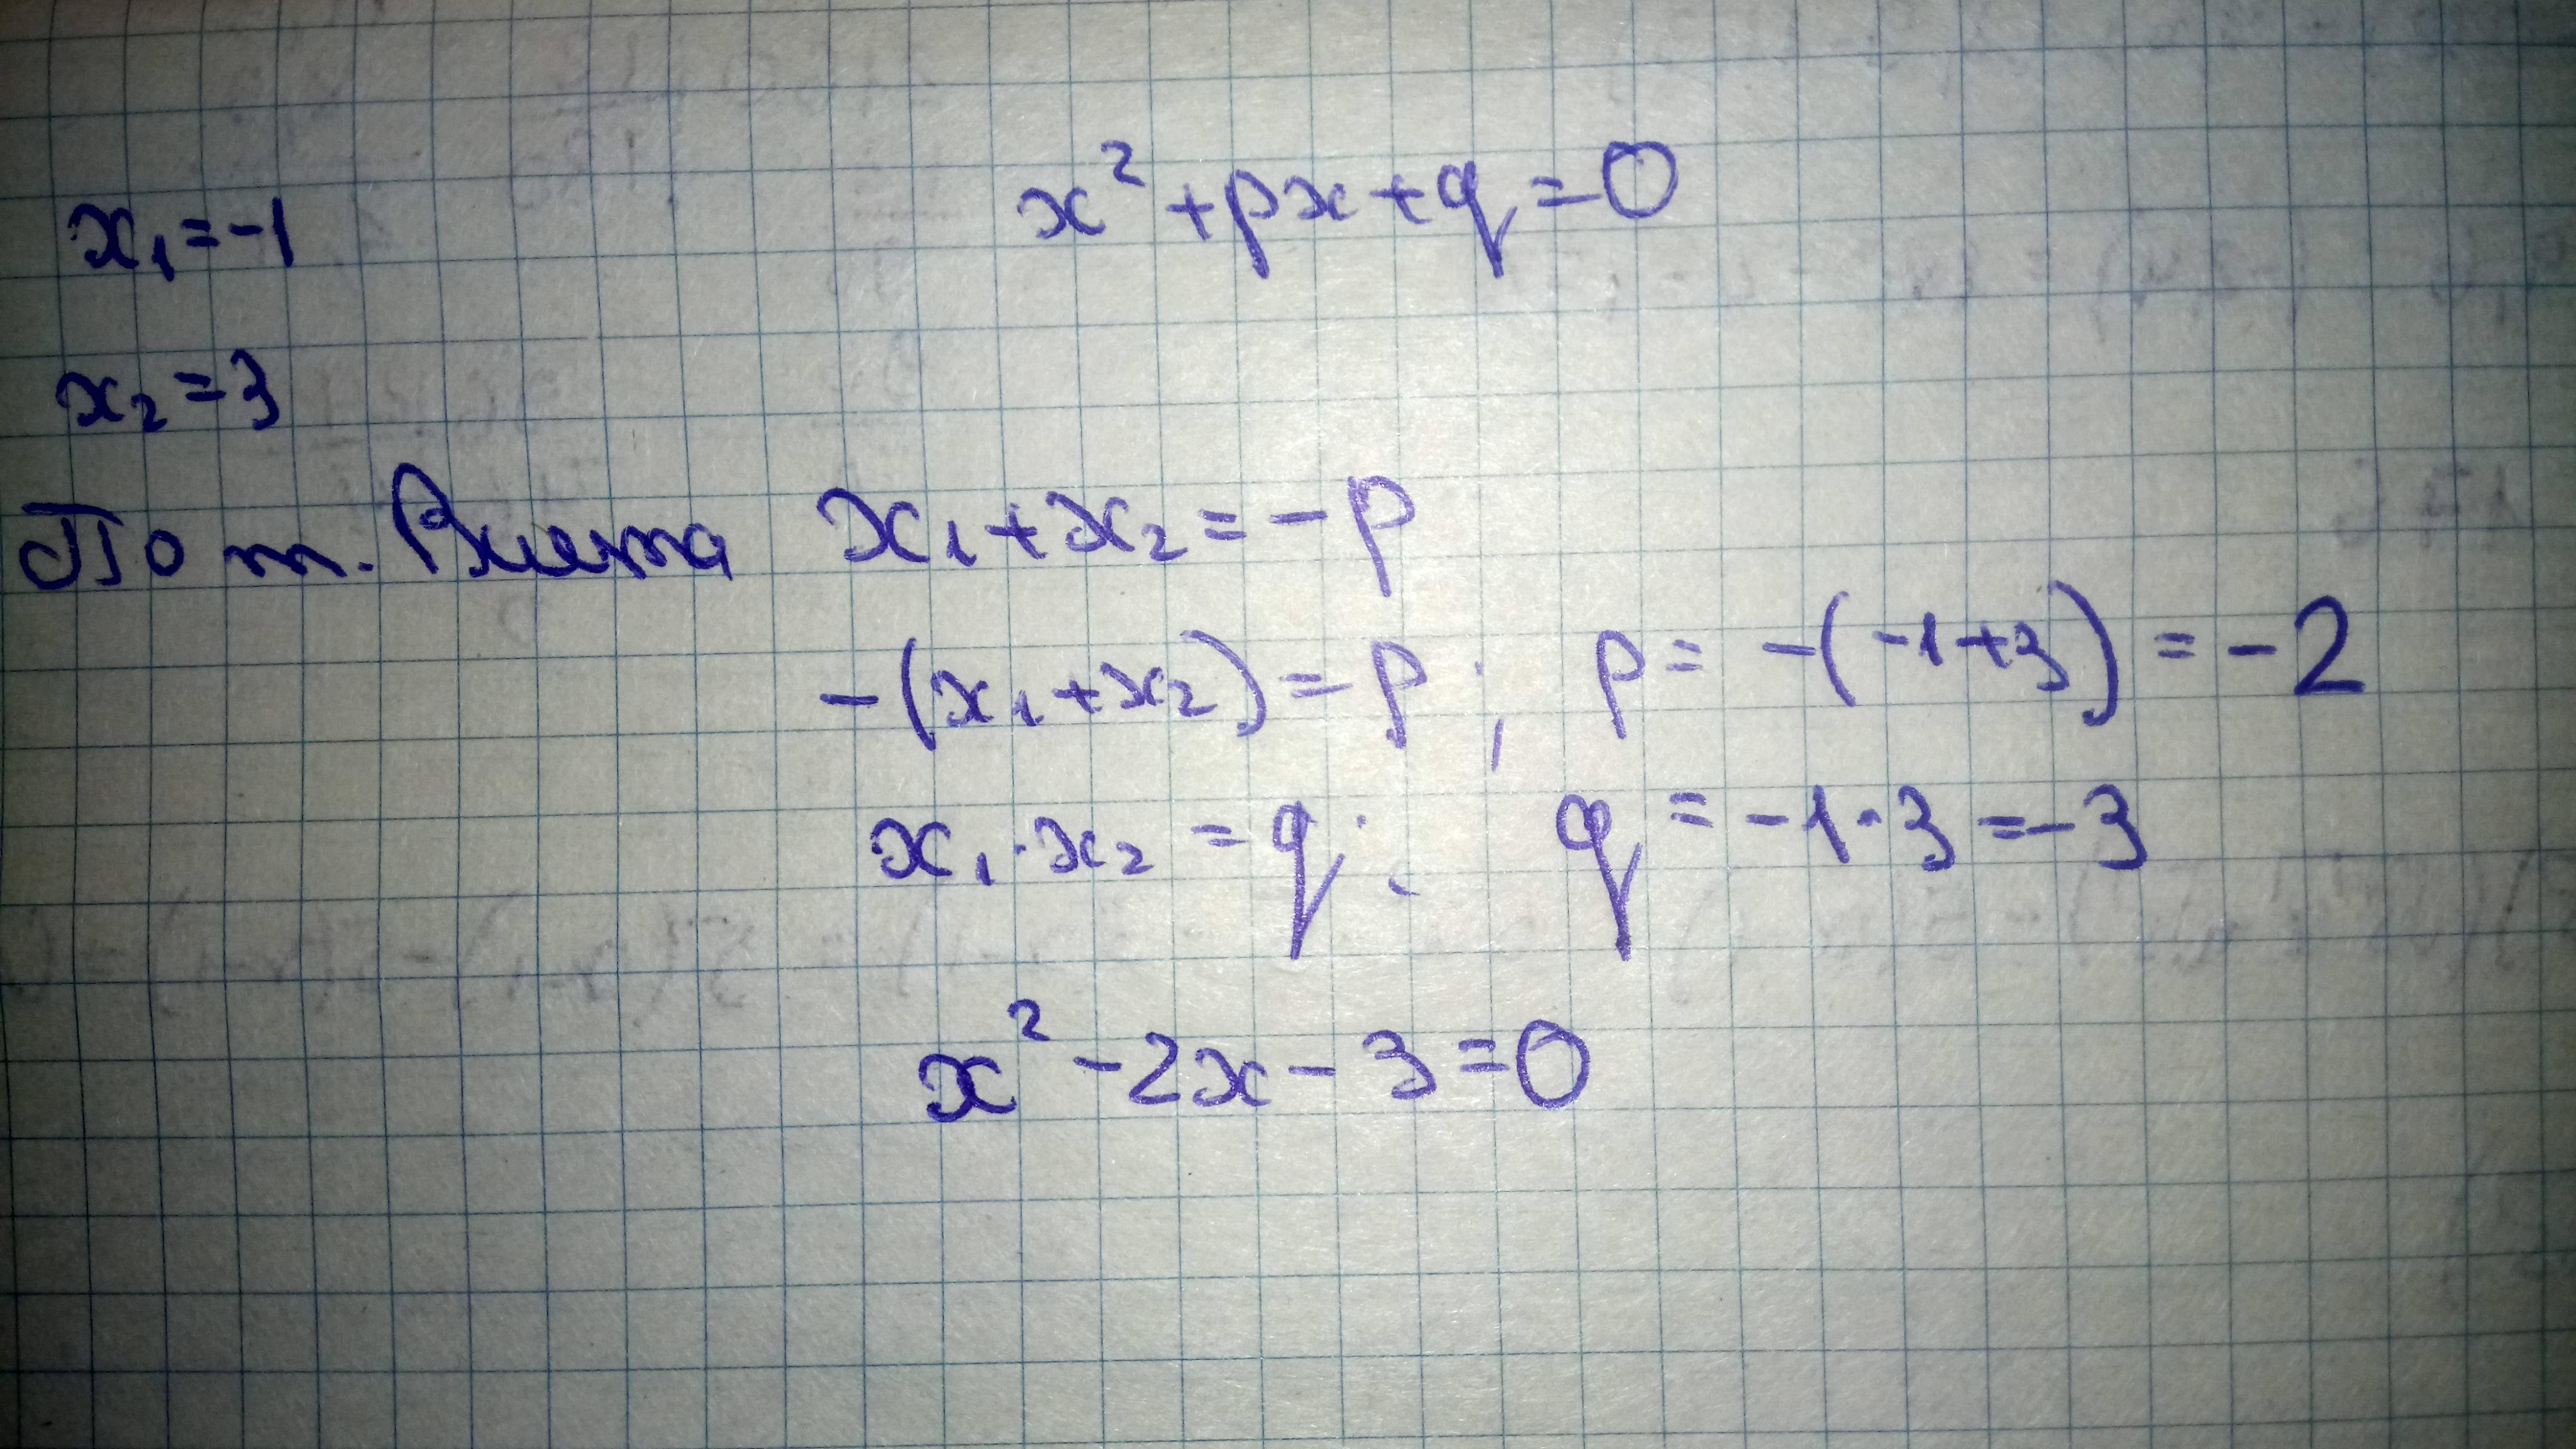 x² + px + q = 0
x₁ = -1
x₂ = 3
По т. Виета x₁ + x₂ = -p
-(x₁ + x₂) = p; p = -(-1+3) = -2
x₁ · x₂ = q; q = -1 · 3 = -3
x² - 2x - 3 = 0